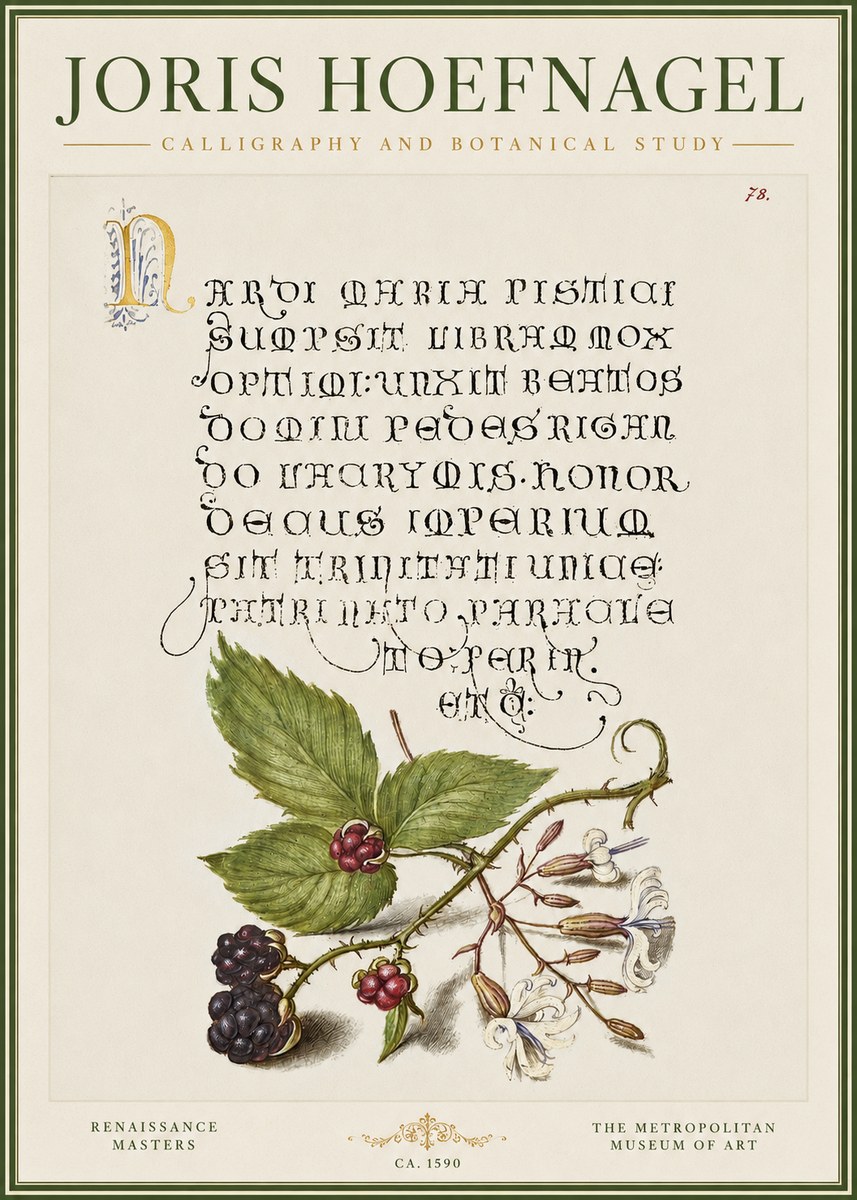 JORIS HOEFNAGEL
CALLIGRAPHY AND BOTANICAL STUDY
78.
NARDI MARIA PISTICI
SUMPSIT LIBRAM MOX
OPTIMI: UNXIT BEATOS
DOMINI PEDES RIGAN
DO LACRYMIS. HONOR
DECUS IMPERIUM
SIT TRINITATI UNICAE
PATRI NATO PARACLE
TO: PER IN.
ET
RENAISSANCE
MASTERS
CA. 1590
THE METROPOLITAN
MUSEUM OF ART